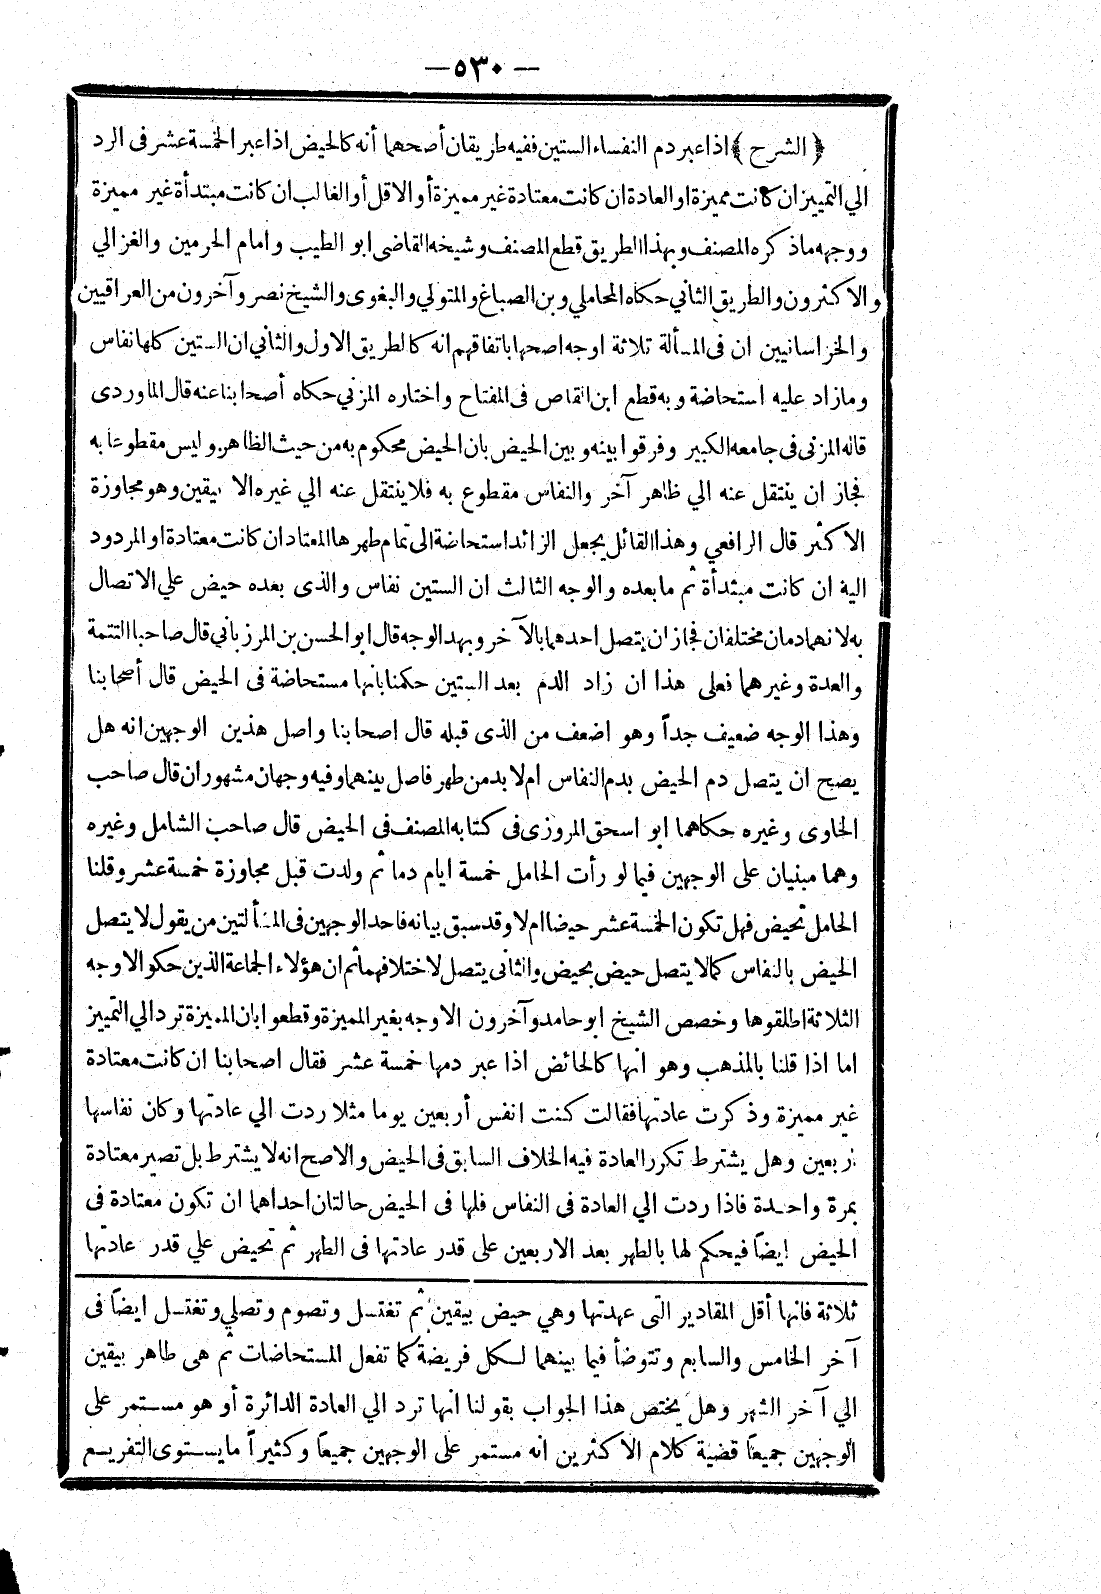 — ٥٣٠ —
﴿ الشرح ﴾ اذا عبر دم النفساء الستين ففيه طريقان أصحهما أنه كالحيض اذا عبر الخمسة عشر فى الرد
الي التمييز ان كانت مميزة او العادة ان كانت معتادة غير مميزة أو الاقل أو الغالب ان كانت مبتدأة غير مميزة
ووجهه ماذكره المصنف وبهذا الطريق قطع المصنف وشيخه القاضى ابو الطيب وامام الحرمين والغزالي
والاكثرون والطريق الثاني حكاه المحاملي وبن الصباغ والمتولي والبغوى والشيخ نصر وآخرون من العراقيين
والخراسانيين ان فى المسألة ثلاثة اوجه اصحها باتفاقهم انه كالطريق الاول والثاني ان الستين كلها نفاس
ومازاد عليه استحاضة وبه قطع ابن القاص فى المفتاح واختاره المزني حكاه أصحابنا عنه قال الماوردى
قاله المزنى فى جامعه الكبير وفرقوا بينه وبين الحيض بان الحيض محكوم به من حيث الظاهر وليس مقطوعا به
فجاز ان ينتقل عنه الي ظاهر آخر والنفاس مقطوع به فلا ينتقل عنه الي غيره الا بيقين وهو مجاوزة
الاكثر قال الرافعي وهذا القائل يجعل الزائد استحاضة الى تمام طهرها المعتاد ان كانت معتادة او المردود
اليه ان كانت مبتدأة ثم مابعده والوجه الثالث ان الستين نفاس والذى بعده حيض علي الاتصال
به لانهما دمان مختلفان فجاز ان يتصل احدهما بالآخر وبهد الوجه قال ابو الحسن بن المرزباني قال صاحبا التتمة
والعدة وغيرهما فعلى هذا ان زاد الدم بعد الستين حكمنا بانها مستحاضة فى الحيض قال أصحابنا
وهذا الوجه ضعيف جداً وهو اضعف من الذى قبله قال اصحابنا واصل هذين الوجهين انه هل
يصح ان يتصل دم الحيض بدم النفاس ام لا بد من طهر فاصل بينهما وفيه وجهان مشهوران قال صاحب
الحاوى وغيره حكاهما ابو اسحق المروزى فى كتابه المصنف فى الحيض قال صاحب الشامل وغيره
وهما مبنيان على الوجهين فيما لو رأت الحامل خمسة ايام دما ثم ولدت قبل مجاوزة خمسة عشر وقلنا
الحامل تحيض فهل تكون الخمسة عشر حيضا ام لا وقد سبق بيانه فاحد الوجهين فى المسألتين من يقول لا يتصل
الحيض بالنفاس كما لا يتصل حيض بحيض والثانى يتصل لاختلافهما ثم ان هؤلاء الجماعة الذين حكوا الاوجه
الثلاثة اطلقوها وخصص الشيخ ابو حامد وآخرون الاوجه بغير المميزة وقطعوا بان المميزة ترد الي التمييز
اما اذا قلنا بالمذهب وهو انها كالحائض اذا عبر دمها خمسة عشر فقال اصحابنا ان كانت معتادة
غير مميزة وذكرت عادتها فقالت كنت انفس أربعين يوما مثلا ردت الي عادتها وكان نفاسها
اربعين وهل يشترط تكرر العادة فيه الخلاف السابق فى الحيض والاصح انه لا يشترط بل تصير معتادة
بمرة واحدة فاذا ردت الي العادة فى النفاس فلها فى الحيض حالتان احداهما ان تكون معتادة فى
الحيض ايضاً فيحكم لها بالطهر بعد الاربعين على قدر عادتها فى الطهر ثم تحيض علي قدر عادتها
ثلاثة فانها أقل المقادير التى عهدتها وهي حيض بيقين ثم تغتسل وتصوم وتصلي وتغتسل ايضاً فى
آخر الخامس والسابع وتتوضأ فيما بينهما لكل فريضة كما تفعل المستحاضات ثم هى طاهر بيقين
الي آخر الشهر وهل يختص هذا الجواب بقولنا انها ترد الي العادة الدائرة أو هو مستمر على
الوجهين جميعاً قضية كلام الاكثرين انه مستمر على الوجهين جميعاً وكثيراً مايستوى التفريع